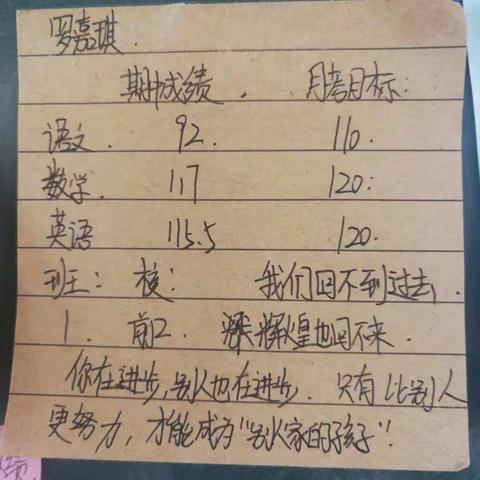 罗嘉琪.
期中成绩. 月考目标:
语文. 92. 110.
数学. 117 120.
英语 115.5 120.
班: 校: 我们回不到过去,
1. 前2. 辉煌也回不来.
你在进步,别人也在进步. 只有比别人
更努力,才能成为“别人家的孩子”.
绩